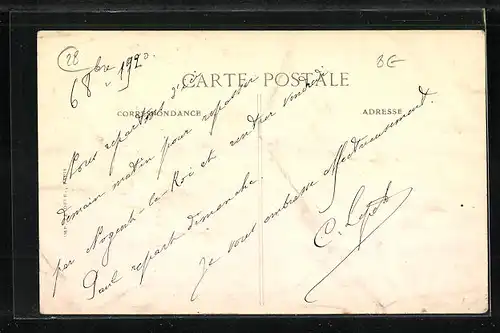 28
6 8bre 1920.
8G
CARTE POSTALE
CORRESPONDANCE
ADRESSE
Nous repartons d'ici
demain matin pour repasser
par Nogent-le-Roi et rentrer vendredi
Paul repart dimanche.
Je vous embrasse affectueusement.